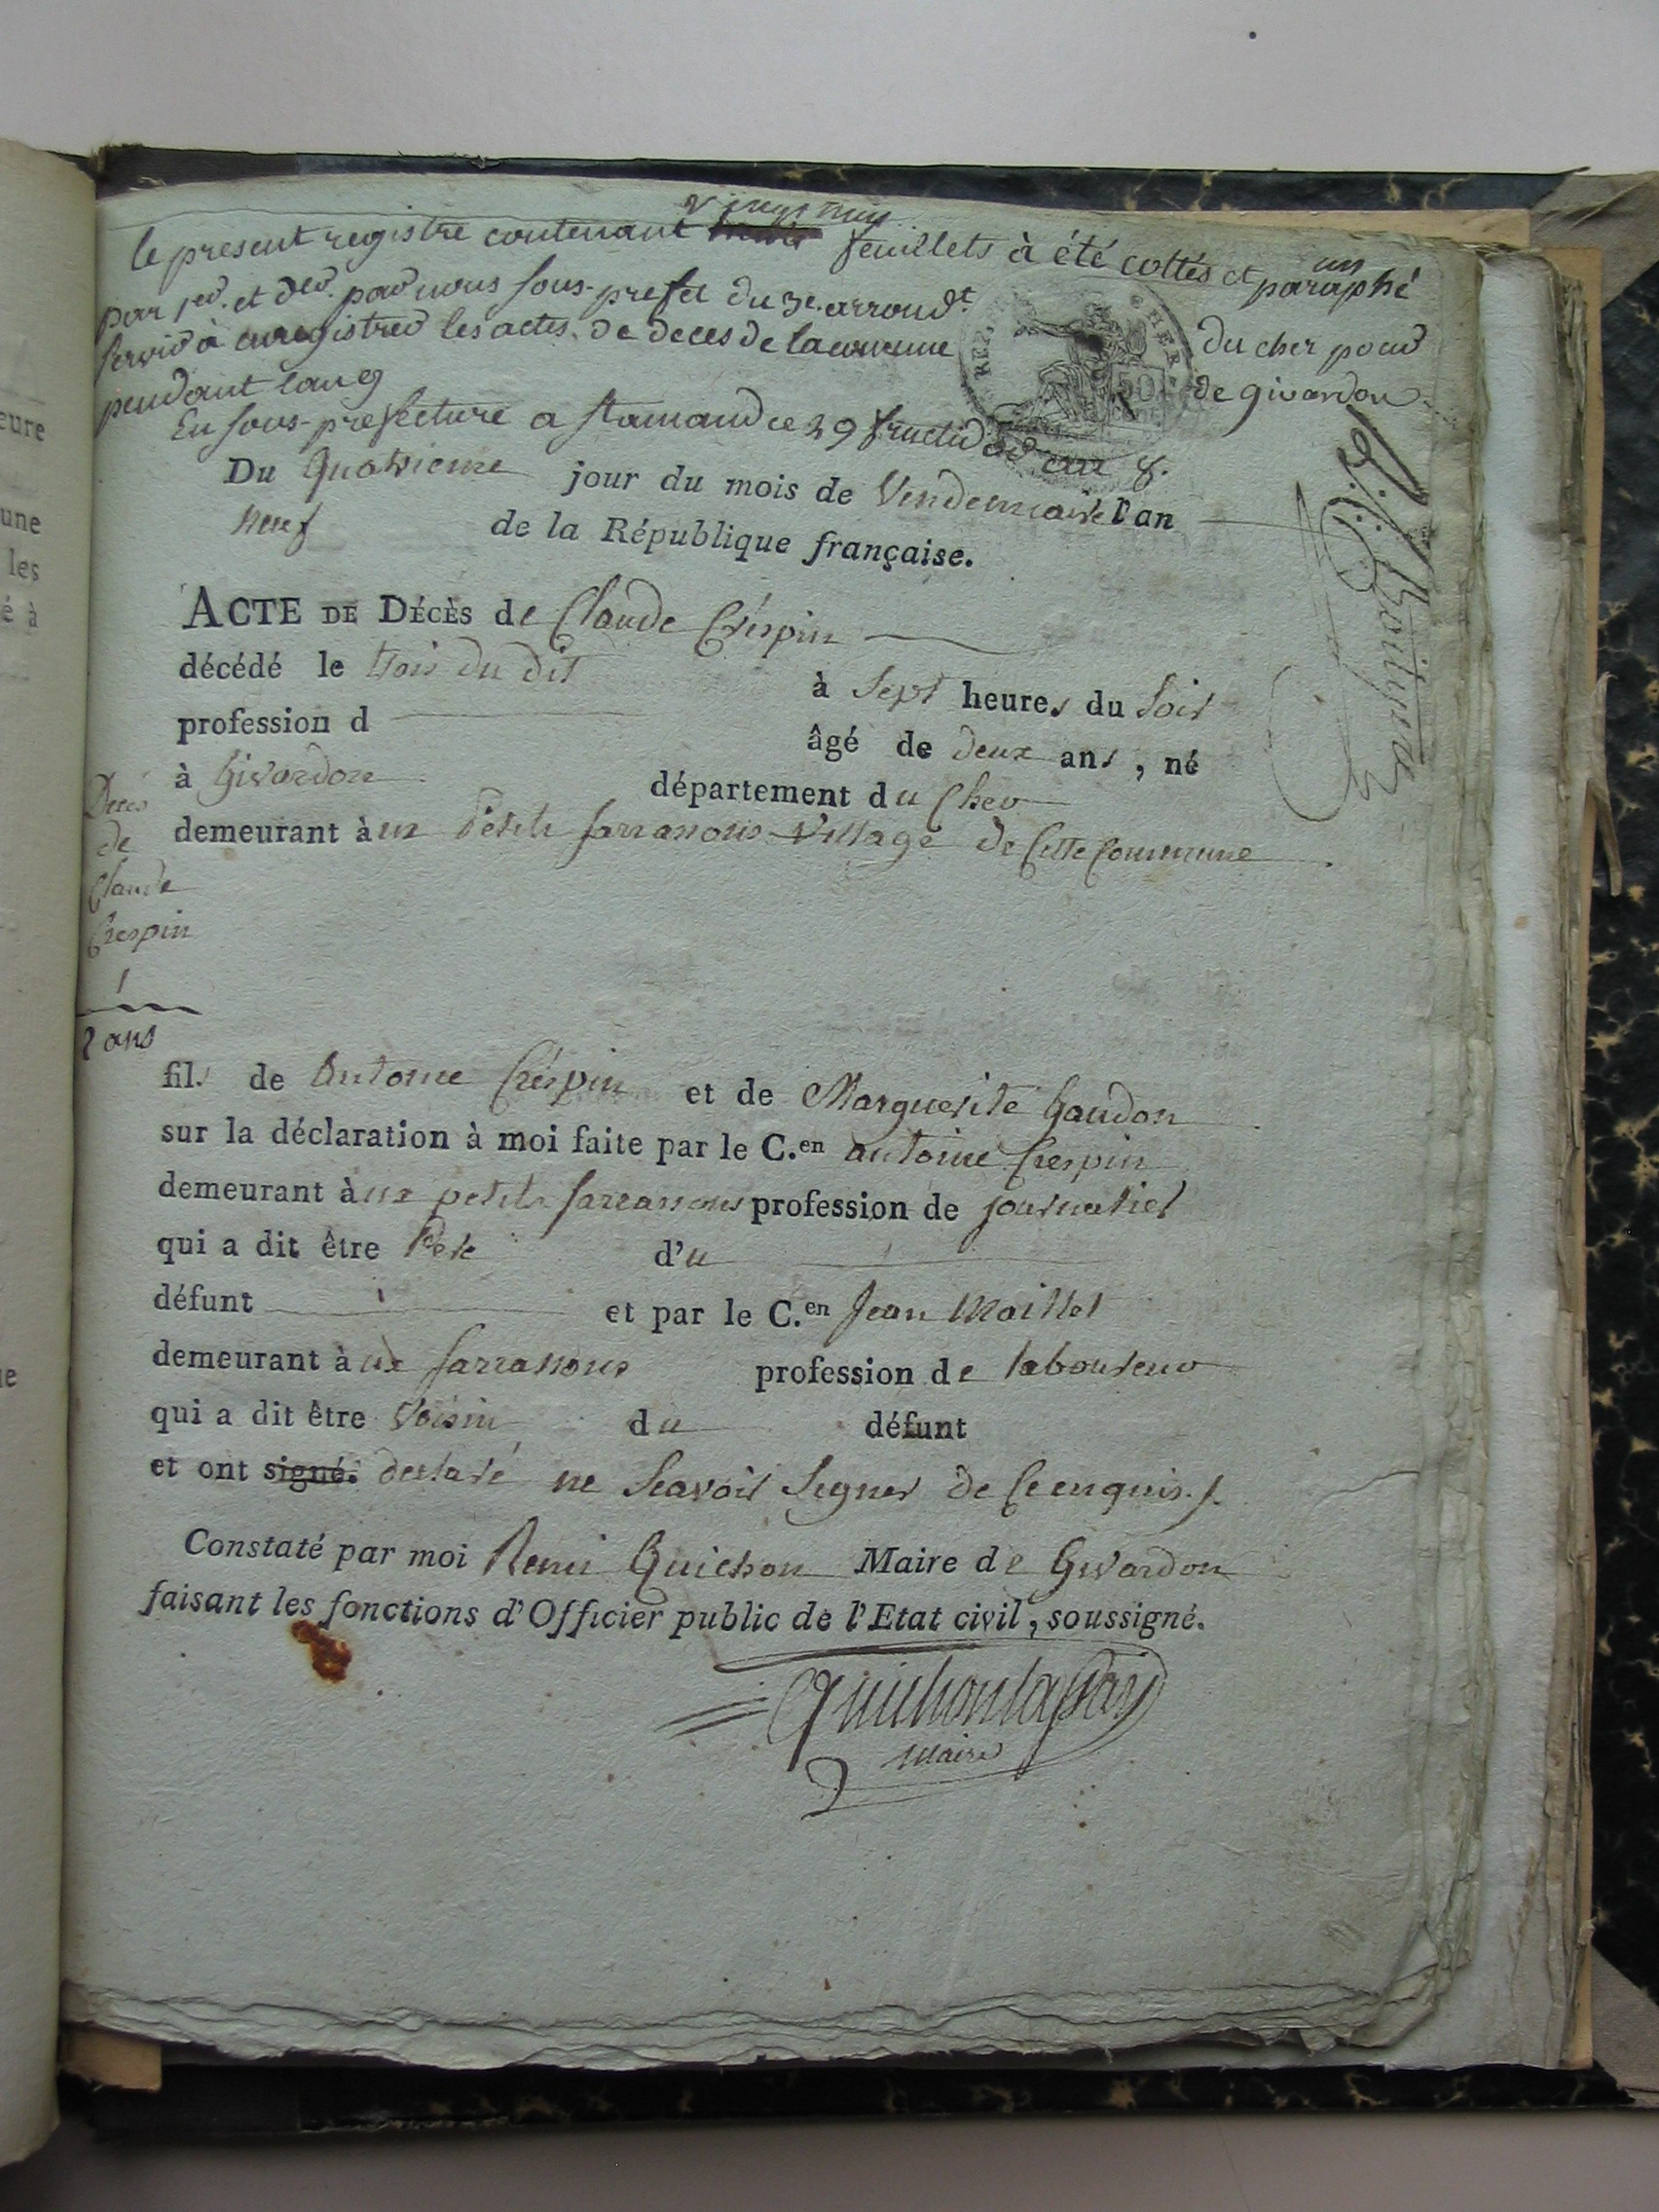 un
le present registre contenant vingt feuillets à été cottés et paraphé
par 1er. et der. par nous sous-prefet du 3e. arrond.t du cher pour
servir à enregistrer les actes de deces de la commune de givardon
pendant l'an 9
En sous-prefecture a st amand ce 29 fructidor an 8.
REP. CHER
50 cent.
Du Quatrieme jour du mois de Vendemiaire l'an
Neuf de la République française.
ACTE DE DÉCÈS de Claude Créspin
décédé le trois du dit à Sept heures du Soir
profession d âgé de deux ans, né
à Givardon département du Cher
demeurant à ux petits sarrassous village de Cette Commune
Deces
de
Claude
Crespin
1
2 ans
fils de Antoine Créspin et de Marguerite Gaudon
sur la déclaration à moi faite par le C.en antoine Crespin
demeurant à ux petits sarrassous profession de journalier
qui a dit être Pere d'u
défunt et par le C.en Jean Maillet
demeurant à ux sarrassous profession de laboureur
qui a dit être Voisin du défunt
et ont signé. declaré ne Scavoir Signer de Ce enquis./.
Constaté par moi Remi Quichon Maire de Givardon
faisant les fonctions d'Officier public de l'Etat civil, soussigné.
maire
eure
une
les
é à